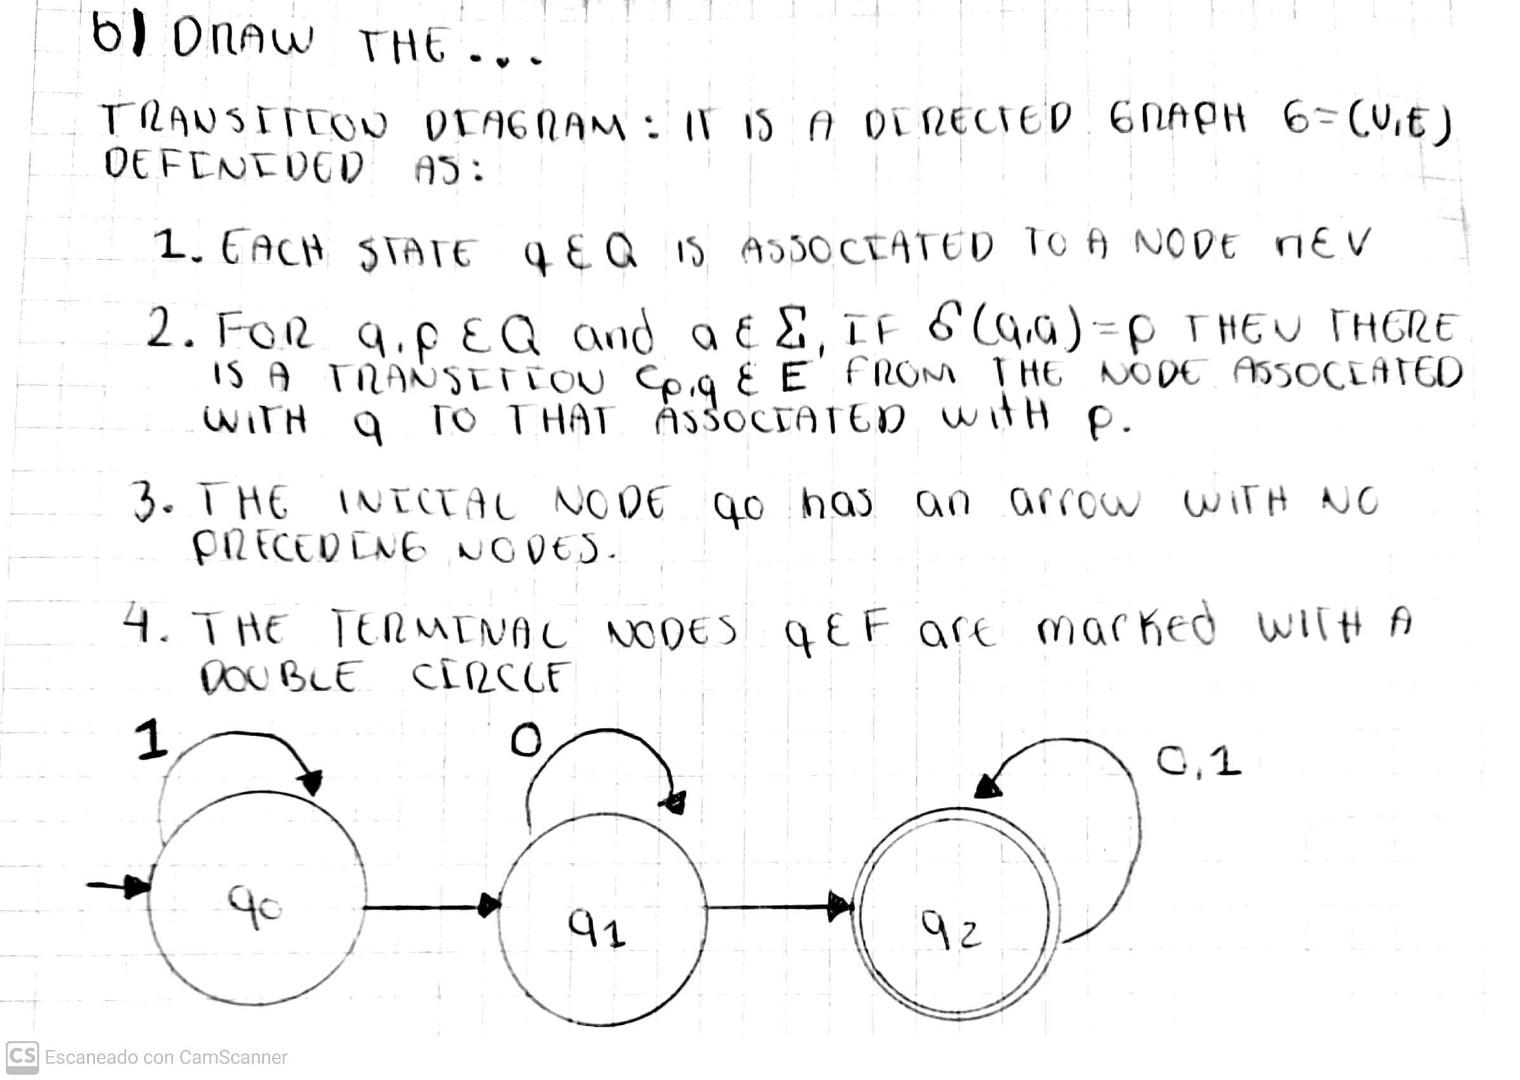 b) DRAW THE...
TRANSITION DIAGRAM: IT IS A DIRECTED GRAPH G=(V,E)
DEFINIDED AS:
1. EACH STATE q ∈ Q IS ASSOCIATED TO A NODE n ∈ V
2. FOR q,p ∈ Q and a ∈ Σ, IF δ(q,a)=p THEN THERE
IS A TRANSITION Cp,q ∈ E FROM THE NODE ASSOCIATED
WITH q TO THAT ASSOCIATED WITH p.
3. THE INICIAL NODE q0 has an arrow WITH NO
PRECEDING NODES.
4. THE TERMINAL NODES q ∈ F are marked WITH A
DOUBLE CIRCLE
1 0 0,1
q0 q1 q2
CS Escaneado con CamScanner